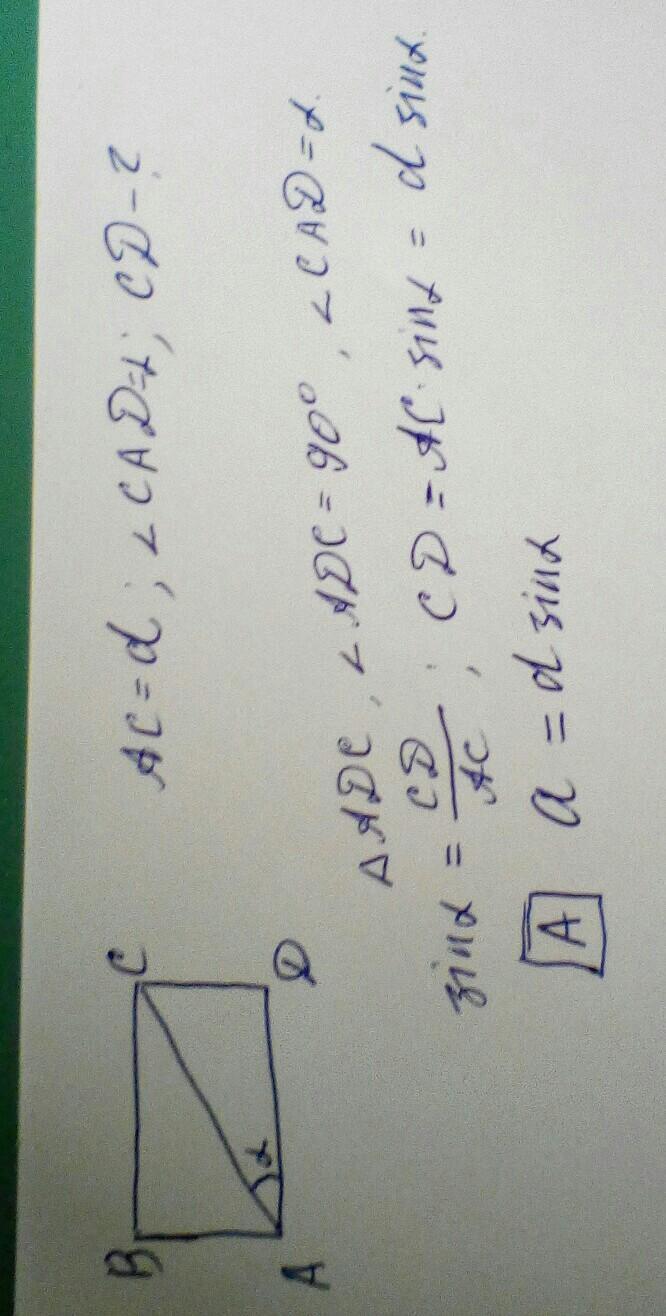 AC = d; ∠CAD=α; CD-?
B C
α
A D
ΔADC, ∠ADC = 90°, ∠CAD=α.
sinα = CD/AC; CD = AC·sinα = d sinα.
A a = d sinα